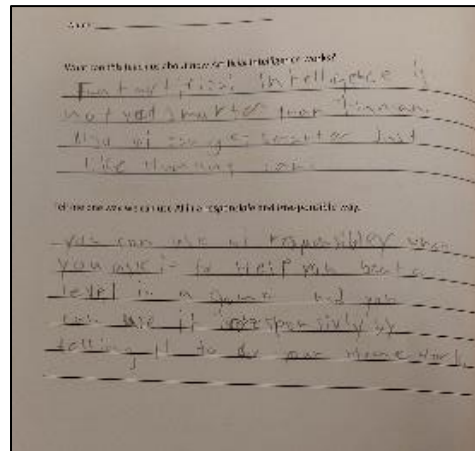 Name
What can this teach us about how artificial intelligence works?
That artificial intelligence is
not yet smarter than human
And ai can get smarter Just
like Humans can
Tell me one way we can use AI in a responsible and irresponsible way.
you can use ai responsibley when
you ask it to Help you beat a
level in a game and you
can use it irresponsivly by
telling it to do your Homework.